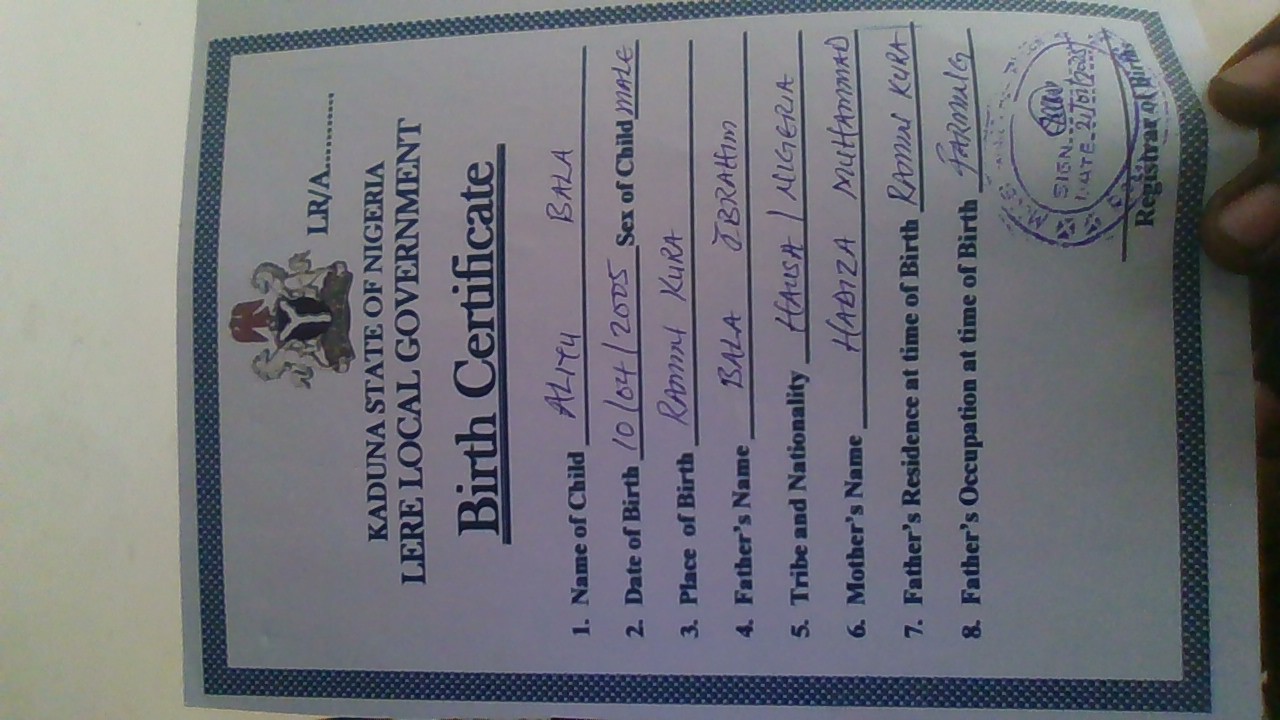 LR/A...............
KADUNA STATE OF NIGERIA
LERE LOCAL GOVERNMENT
Birth Certificate
1. Name of Child ALIYU BALA
2. Date of Birth 10/04/2005 Sex of Child MALE
3. Place of Birth RAMIN KURA
4. Father's Name BALA IBRAHIM
5. Tribe and Nationality HAUSA / NIGERIA
6. Mother's Name HADIZA MUHAMMAD
7. Father's Residence at time of Birth RAMIN KURA
8. Father's Occupation at time of Birth FARMING
SIGN
DATE
Registrar of Births